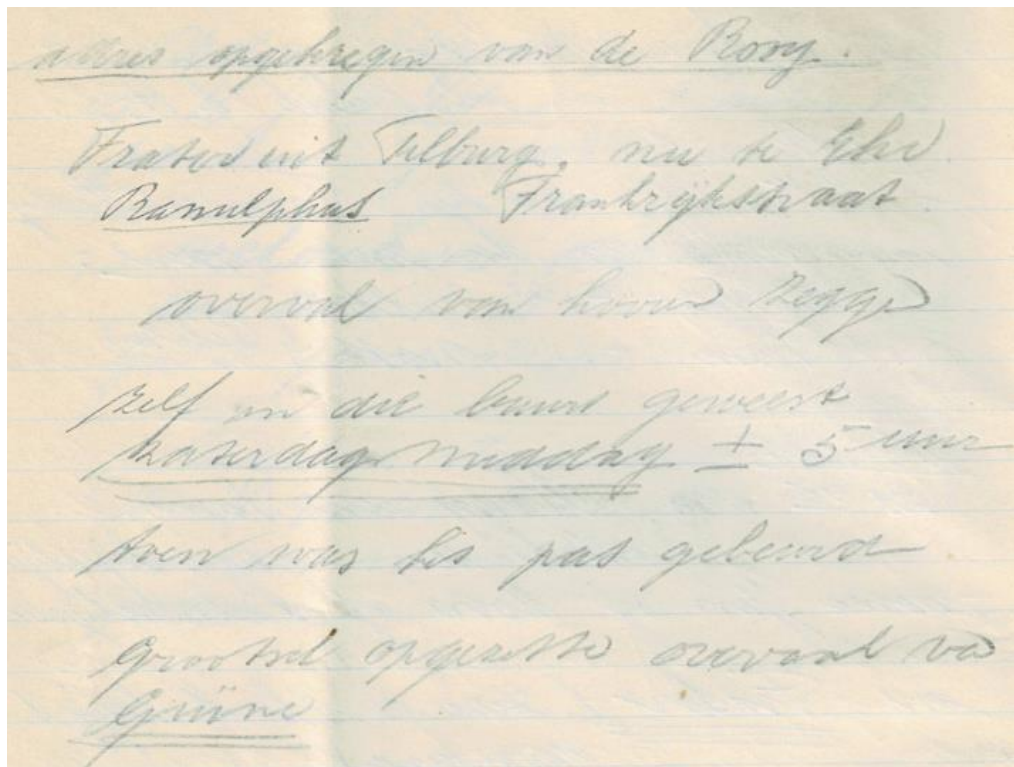 adres opgekregen van de Rooy.
Frater uit Tilburg, nu te Ehv.
Ranulphus Frankrijkstraat.
overval van hooren zeggen
zelf in die buurt geweest
zaterdag middag ± 5 uur
toen was het pas gebeurd
Grootsch opgezette overval vd
Grüne